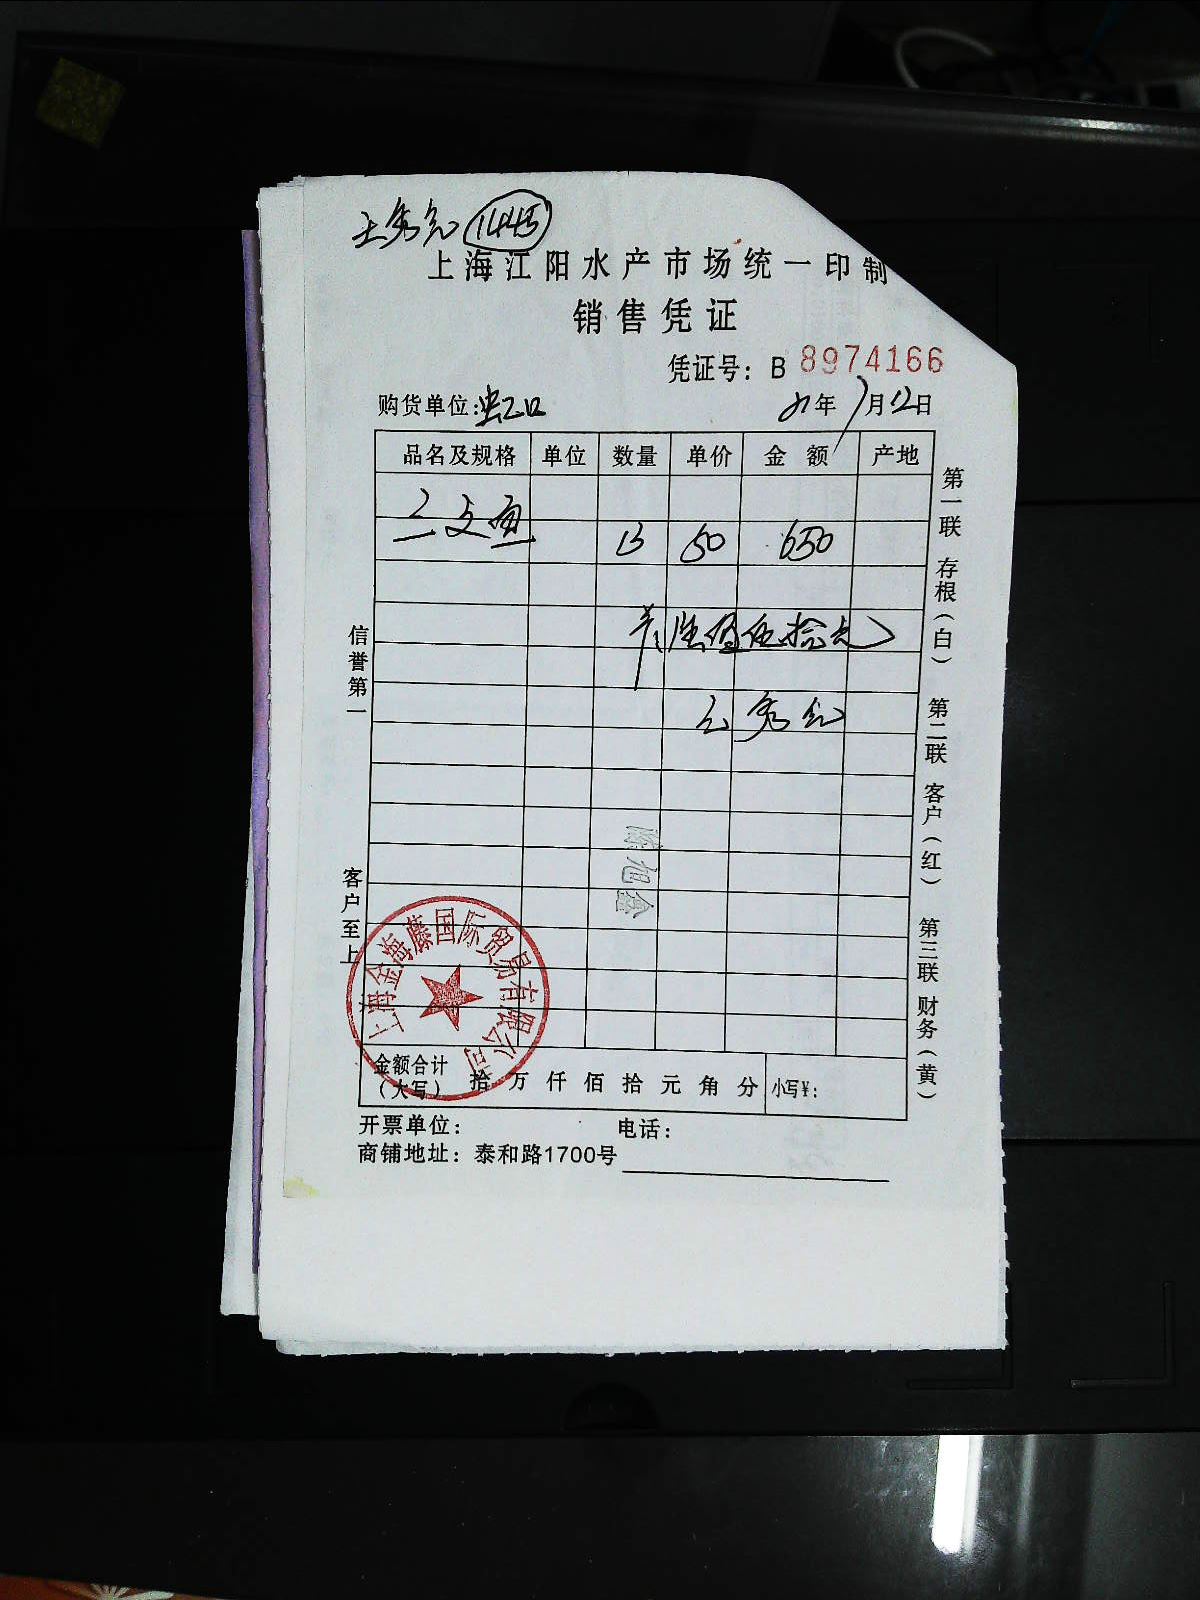 1445
上海江阳水产市场统一印制
销售凭证
凭证号：B 8974166
购货单位：虹口 年7月12日
品名及规格 单位 数量 单价 金额 产地
三文鱼 13 50 650
陆佰伍拾元
陈旭鑫
信誉第一
客户至上
第一联 存根（白） 第二联 客户（红） 第三联 财务（黄）
上海金海藤国际贸易有限公司
金额合计（大写） 拾万仟佰拾元角分 小写¥：
开票单位： 电话：
商铺地址：泰和路1700号